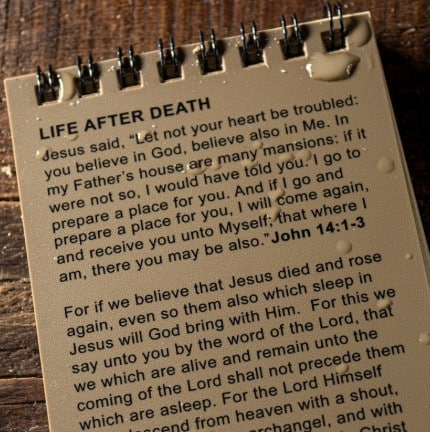 LIFE AFTER DEATH
Jesus said, "Let not your heart be troubled:
you believe in God, believe also in Me. In
my Father's house are many mansions: if it
were not so, I would have told you. I go to
prepare a place for you. And if I go and
prepare a place for you, I will come again,
and receive you unto Myself; that where I
am, there you may be also." John 14:1-3
For if we believe that Jesus died and rose
again, even so them also which sleep in
Jesus will God bring with Him. For this we
say unto you by the word of the Lord, that
we which are alive and remain unto the
coming of the Lord shall not precede them
which are asleep. For the Lord Himself
descend from heaven with a shout,
archangel, and with
Christ